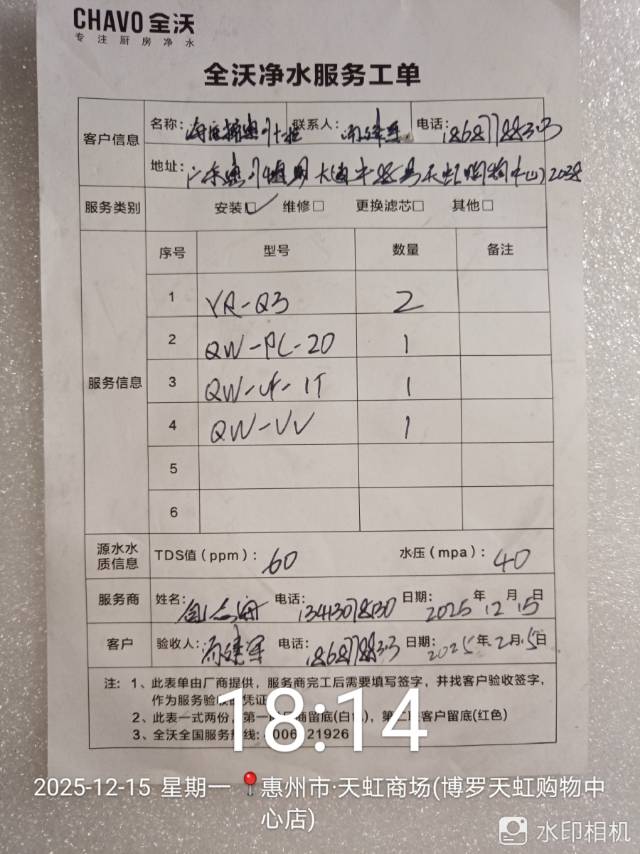 CHAVO 全沃
专注厨房净水
全沃净水服务工单
客户信息
名称: 联系人: 电话: 18687788303
地址: 广东惠州博罗 天虹购物中心 2038
服务类别 安装☑ 维修□ 更换滤芯□ 其他□
服务信息
序号 型号 数量 备注
1 YR-Q3 2
2 QW-PC-20 1
3 QW-UF-1T 1
4 QW-UV 1
5
6
源水水质信息 TDS值(ppm): 60 水压(mpa): 40
服务商 姓名: 电话: 日期: 2025年12月15日
客户 验收人: 电话: 18687788303 日期: 2025年12月15日
注: 1、此表单由厂商提供,服务商完工后需要填写签字,并找客户验收签字,
作为服务验收
2、此表一式两份,第一 商留底(白色),第二联客户留底(红色)
3、全沃全国服务热线: 21926
18:14
2025-12-15 星期一 惠州市·天虹商场(博罗天虹购物中
心店)
水印相机